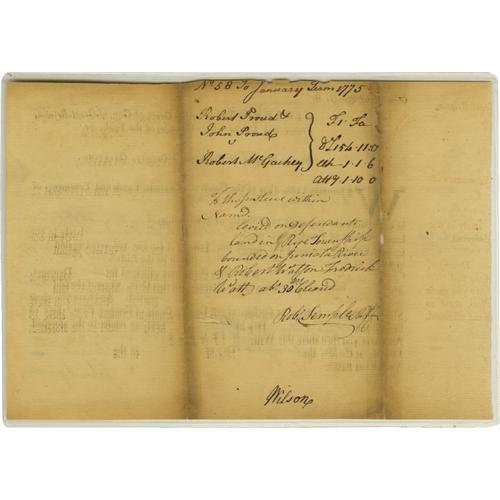 No 58 To January Term 1775
Robert Proud &
John Proud
Robert McGachey
Fi: Fa
Dt 154..11..0
At 1..1..6
Att 1..10..0
To the Justices within
Namd.
Levied on Defendants
Land in Rye Township
bounded on Juniata River
& Robert Watson Fredrick
Watt abt. 30 Cleard
Robt. Semple
Wilson